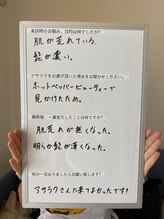 来店時のお悩み、目的は何でしたか?
肌が荒れている。
髭が濃い。
アサラクをお選び頂いた理由をお聞かせください。
ホットペッパービューティーで
見かけたため。
施術後、一番変化したことは何ですか?
肌荒れが無くなった。
明らか髭が薄くなった。
何か一言ありましたらお願い致します!
アサラクさんに来てよかったです!